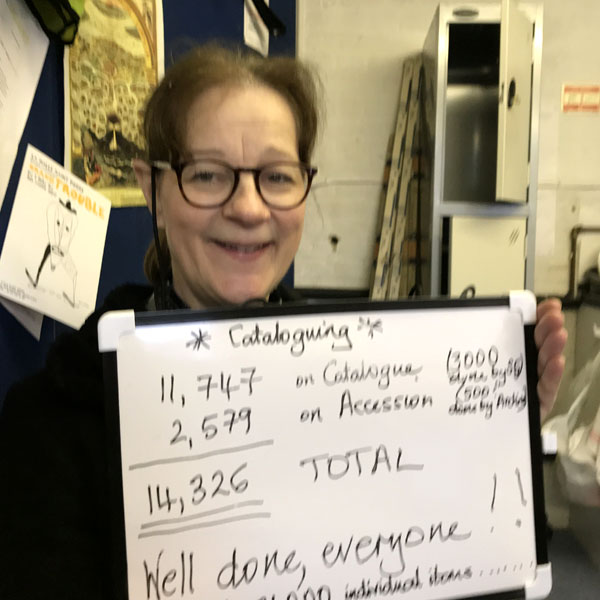 * Cataloguing *
11,747 on Catalogue (3000 done by
2,579 on Accession (500 done by
14,326 TOTAL
Well done, everyone !!
individual items......